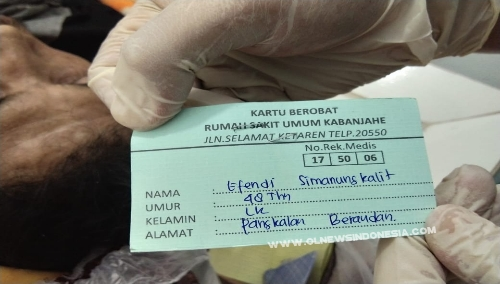 KARTU BEROBAT
RUMAH SAKIT UMUM KABANJAHE
JLN.SELAMAT KETAREN TELP.20550
No.Rek.Medis
17 50 06
NAMA : Efendi Simanungkalit
UMUR : 48 Thn
KELAMIN : LK
ALAMAT : Pangkalan Berandan.
WWW.OLNEWSINDONESIA.COM